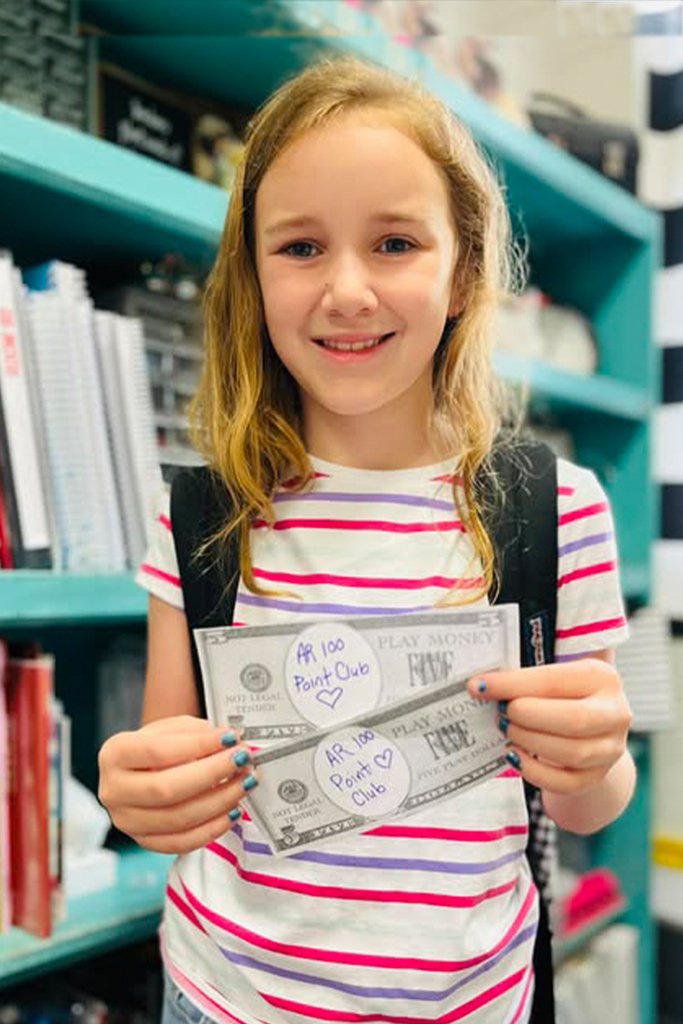 AR 100
Point Club
♡
PLAY MONEY
FIVE
NOT LEGAL
TENDER
5
FIVE
AR 100
Point ♡
Club
PLAY MONEY
FIVE
FIVE PLAY DOLLARS
NOT LEGAL
TENDER
5
FIVE
DOLLARS